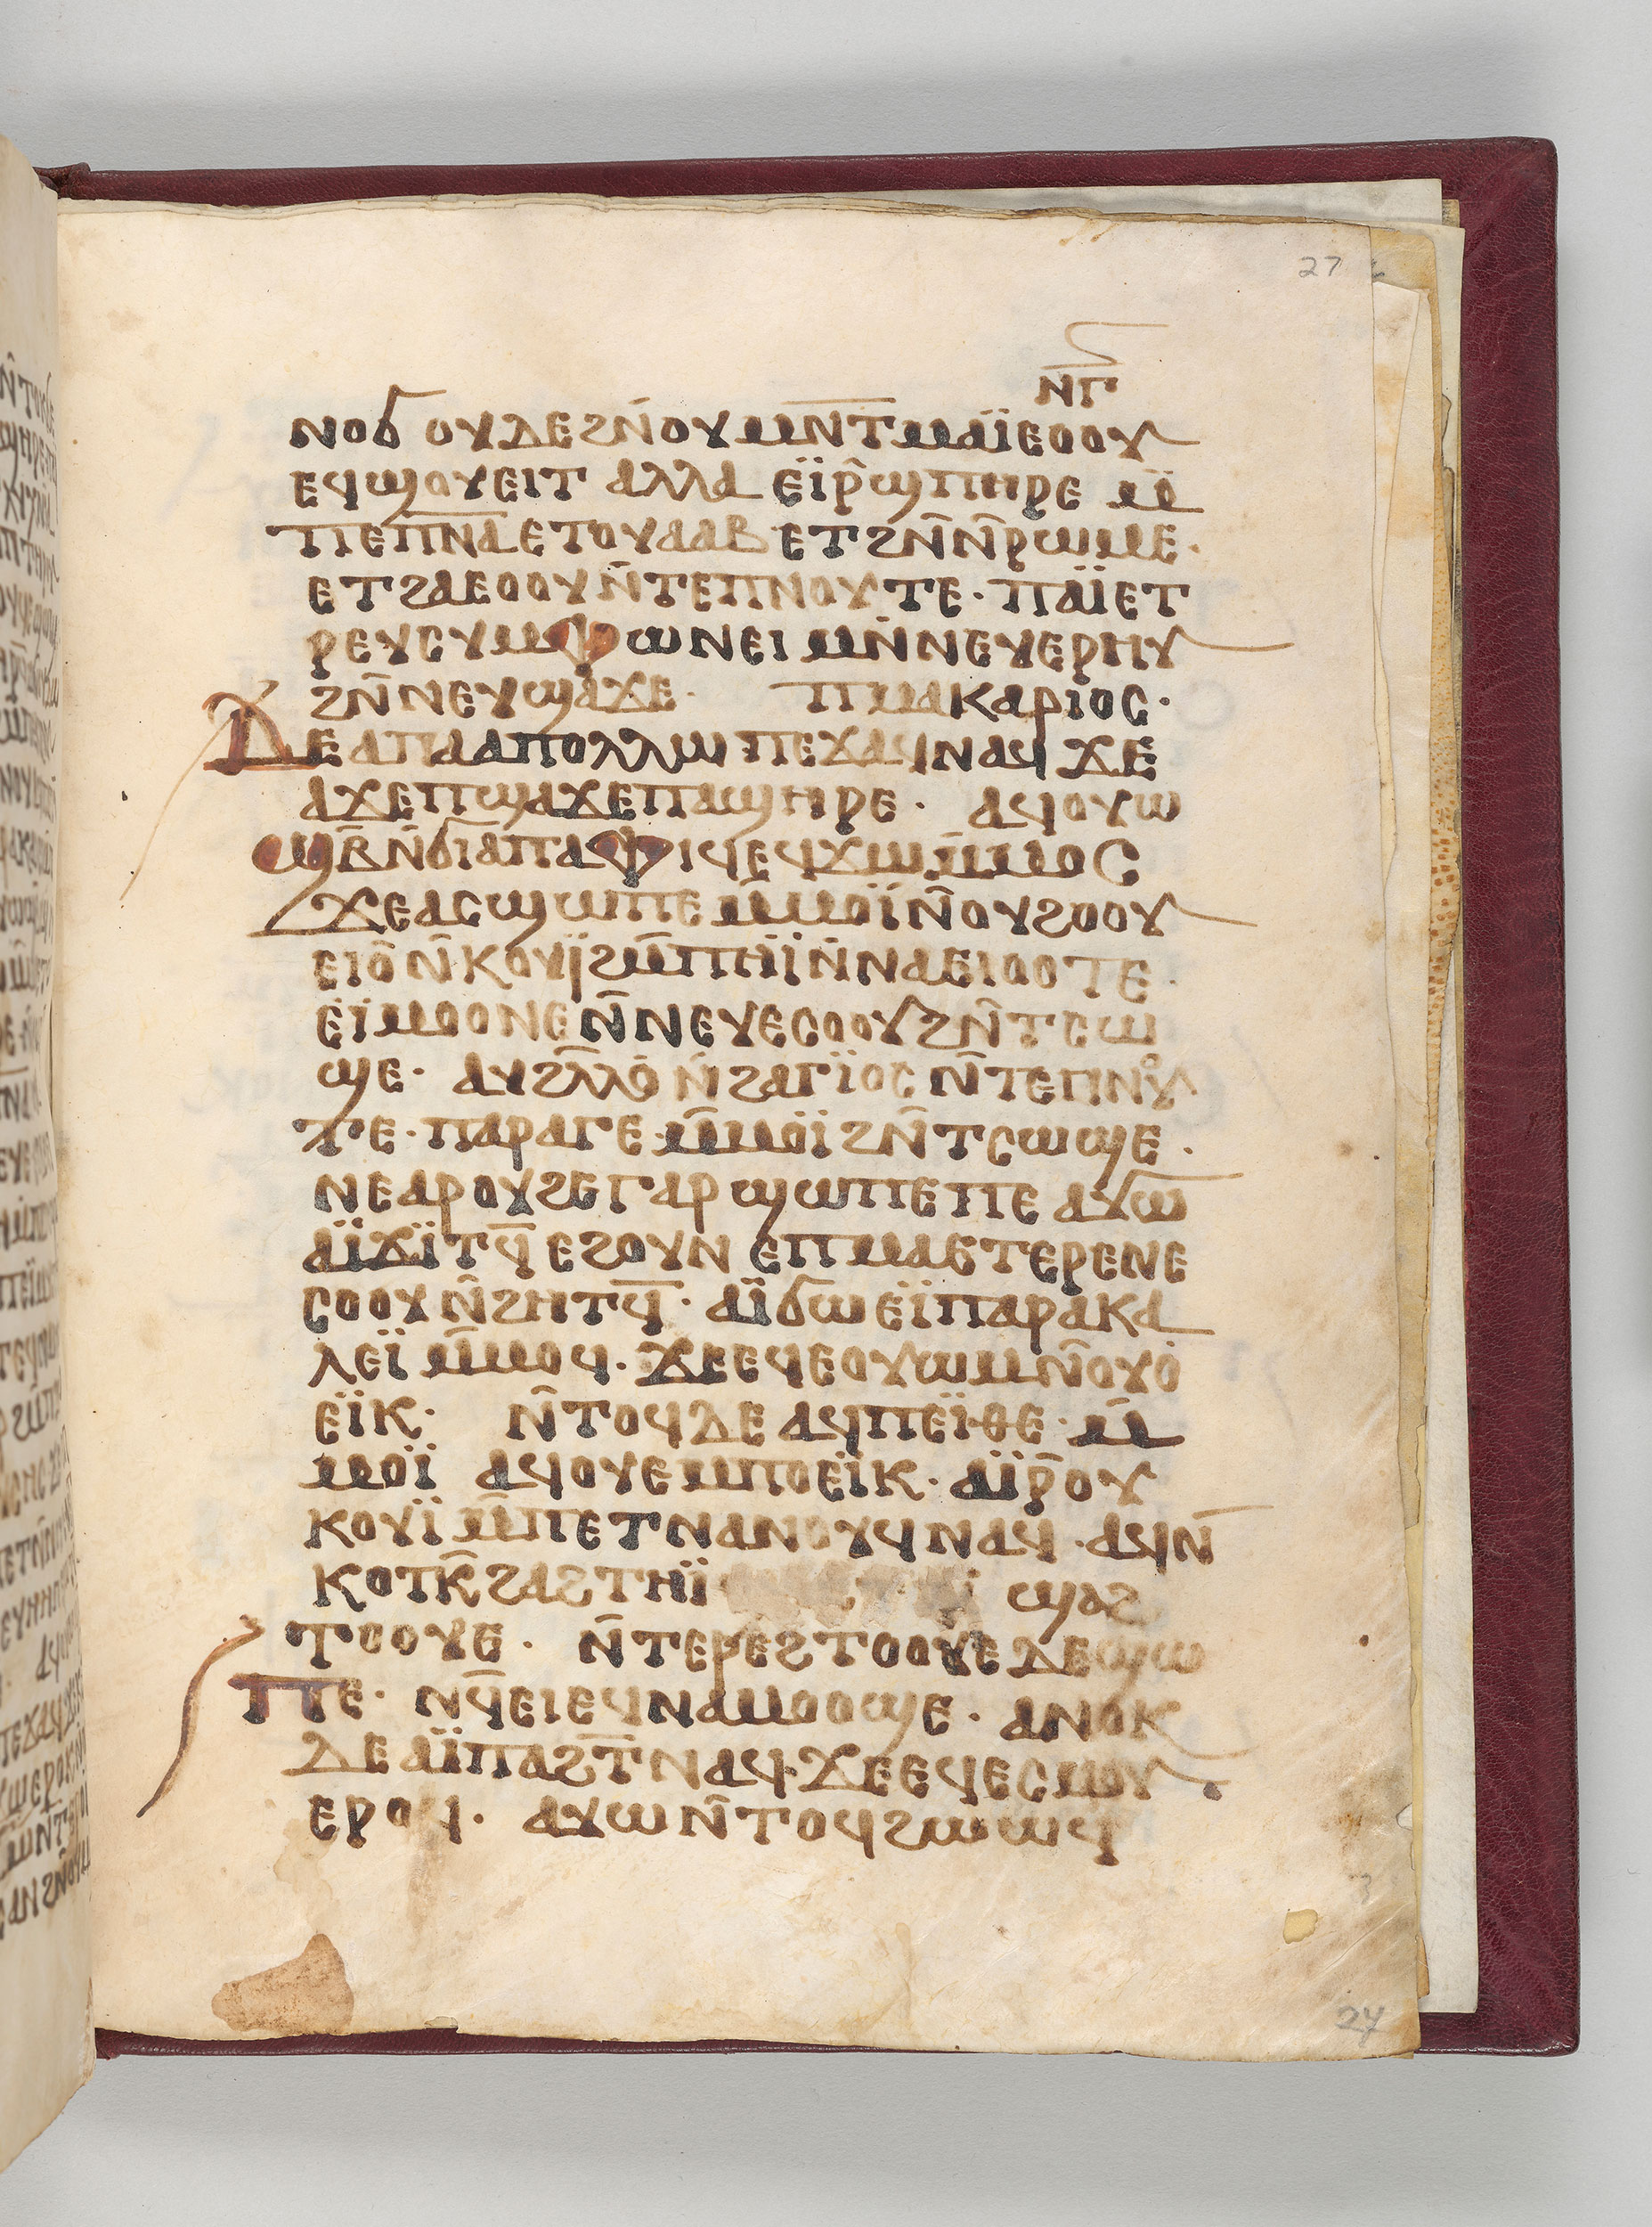 27
ⲛ̅ⲅ̅
ⲛⲟϭ ⲟⲩⲇⲉ ϩⲛ̄ⲟⲩⲙⲛ̅ⲧ̅ⲙⲁⲓ̈ⲉⲟⲟⲩ
ⲉϥϣⲟⲩⲉⲓⲧ ⲁⲗⲗⲁ ⲉⲓ̈ⲣ̄ϣⲡⲏⲣⲉ ⲙ̄
ⲡⲉⲡ̅ⲛ̅ⲁ̅ ⲉⲧⲟⲩⲁⲁⲃ ⲉⲧϩⲛ̄ⲛ̄ⲣⲱⲙⲉ·
ⲉⲧϩⲁⲉⲟⲟⲩ ⲛ̄ⲧⲉⲡⲛⲟⲩⲧⲉ· ⲡⲁⲓ̈ⲉⲧ
ⲣⲉⲩⲥⲩⲙⲫⲱⲛⲉⲓ ⲙⲛ̄ⲛⲉⲩⲉⲣⲏⲩ
ϩⲛ̄ⲛⲉⲩϣⲁϫⲉ· ⲡⲙⲁⲕⲁⲣⲓⲟⲥ·
ⲇⲉ ⲁⲡⲁ ⲁⲡⲟⲗⲗⲱ ⲡⲉϫⲁϥ ⲛⲁϥ ϫⲉ
ⲁϫⲉⲡϣⲁϫⲉ ⲡⲁϣⲏⲣⲉ· ⲁϥⲟⲩⲱ
ϣⲃ̄ⲛ̄ϭⲓⲁⲡⲁ ⲫⲓϥ ⲉϥϫⲱ ⲙ̄ⲙⲟⲥ
ϫⲉ ⲁⲥϣⲱⲡⲉ ⲙ̄ⲙⲟⲓ̈ ⲛ̄ⲟⲩϩⲟⲟⲩ
ⲉⲓⲟ̄ ⲛ̄ⲕⲟⲩⲓ̈ ϩⲙ̄ⲡⲏⲓ̈ ⲛ̄ⲛⲁⲉⲓⲟⲟⲧⲉ·
ⲉⲓ̈ⲙⲟⲟⲛⲉ ⲛ̄ⲛⲉⲩⲉⲥⲟⲟⲩ ϩⲛ̄ⲧⲥⲱ
ϣⲉ· ⲁⲩϩⲗ̄ⲗⲟ ⲛ̄ϩⲁⲅⲓ̈ⲟⲥ ⲛ̄ⲧⲉⲡⲛⲟⲩ
ⲧⲉ· ⲡⲁⲣⲁⲅⲉ ⲙ̄ⲙⲟⲓ̈ ϩⲛ̄ⲧⲥⲱϣⲉ·
ⲛⲉⲁⲣⲟⲩϩⲉ ⲅⲁⲣ ϣⲱⲡⲉ ⲡⲉ ⲁⲩⲱ
ⲁⲓ̈ϫⲓ̈ⲧϥ̄ ⲉϩⲟⲩⲛ ⲉⲡⲙⲁ ⲉⲧⲉⲣⲉⲛⲉ
ⲥⲟⲟⲩ ⲛ̄ϩⲏⲧϥ̄· ⲁⲓ̈ϭⲱ ⲉⲓ̈ⲡⲁⲣⲁⲕⲁ
ⲗⲉⲓ̈ ⲙ̄ⲙⲟϥ· ϫⲉ ⲉϥⲉⲟⲩⲱⲙ ⲛ̄ⲟⲩⲟ
ⲉⲓ̈ⲕ· ⲛ̄ⲧⲟϥ ⲇⲉ ⲁϥⲡⲉⲓ̈ⲑⲉ· ⲙ̄
ⲙⲟⲓ̈ ⲁϥⲟⲩⲉⲙⲡⲟⲉⲓⲕ· ⲁⲓ̈ⲣ̄ⲟⲩ
ⲕⲟⲩⲓ̈ ⲙ̄ⲡⲉⲧⲛⲁⲛⲟⲩϥ ⲛⲁϥ· ⲁϥⲛ̄
ⲕⲟⲧⲕ̄ ϩⲁϩⲧⲏⲓ̈ ϣⲁϩ
ⲧⲟⲟⲩⲉ· ⲛ̄ⲧⲉⲣⲉϩⲧⲟⲟⲩⲉ ⲇⲉ ϣⲱ
ⲡⲉ· ⲛϥ̄ⲉⲓ ⲉϥⲛⲁⲙⲟⲟϣⲉ· ⲁⲛⲟⲕ
ⲇⲉ ⲁⲓ̈ⲡⲁϩⲧ̄ ⲛⲁϥ· ϫⲉ ⲉϥⲉⲥⲙⲟⲩ
ⲉⲣⲟϥ· ⲁⲩⲱ ⲛ̄ⲧⲟϥ ϩⲱⲱϥ